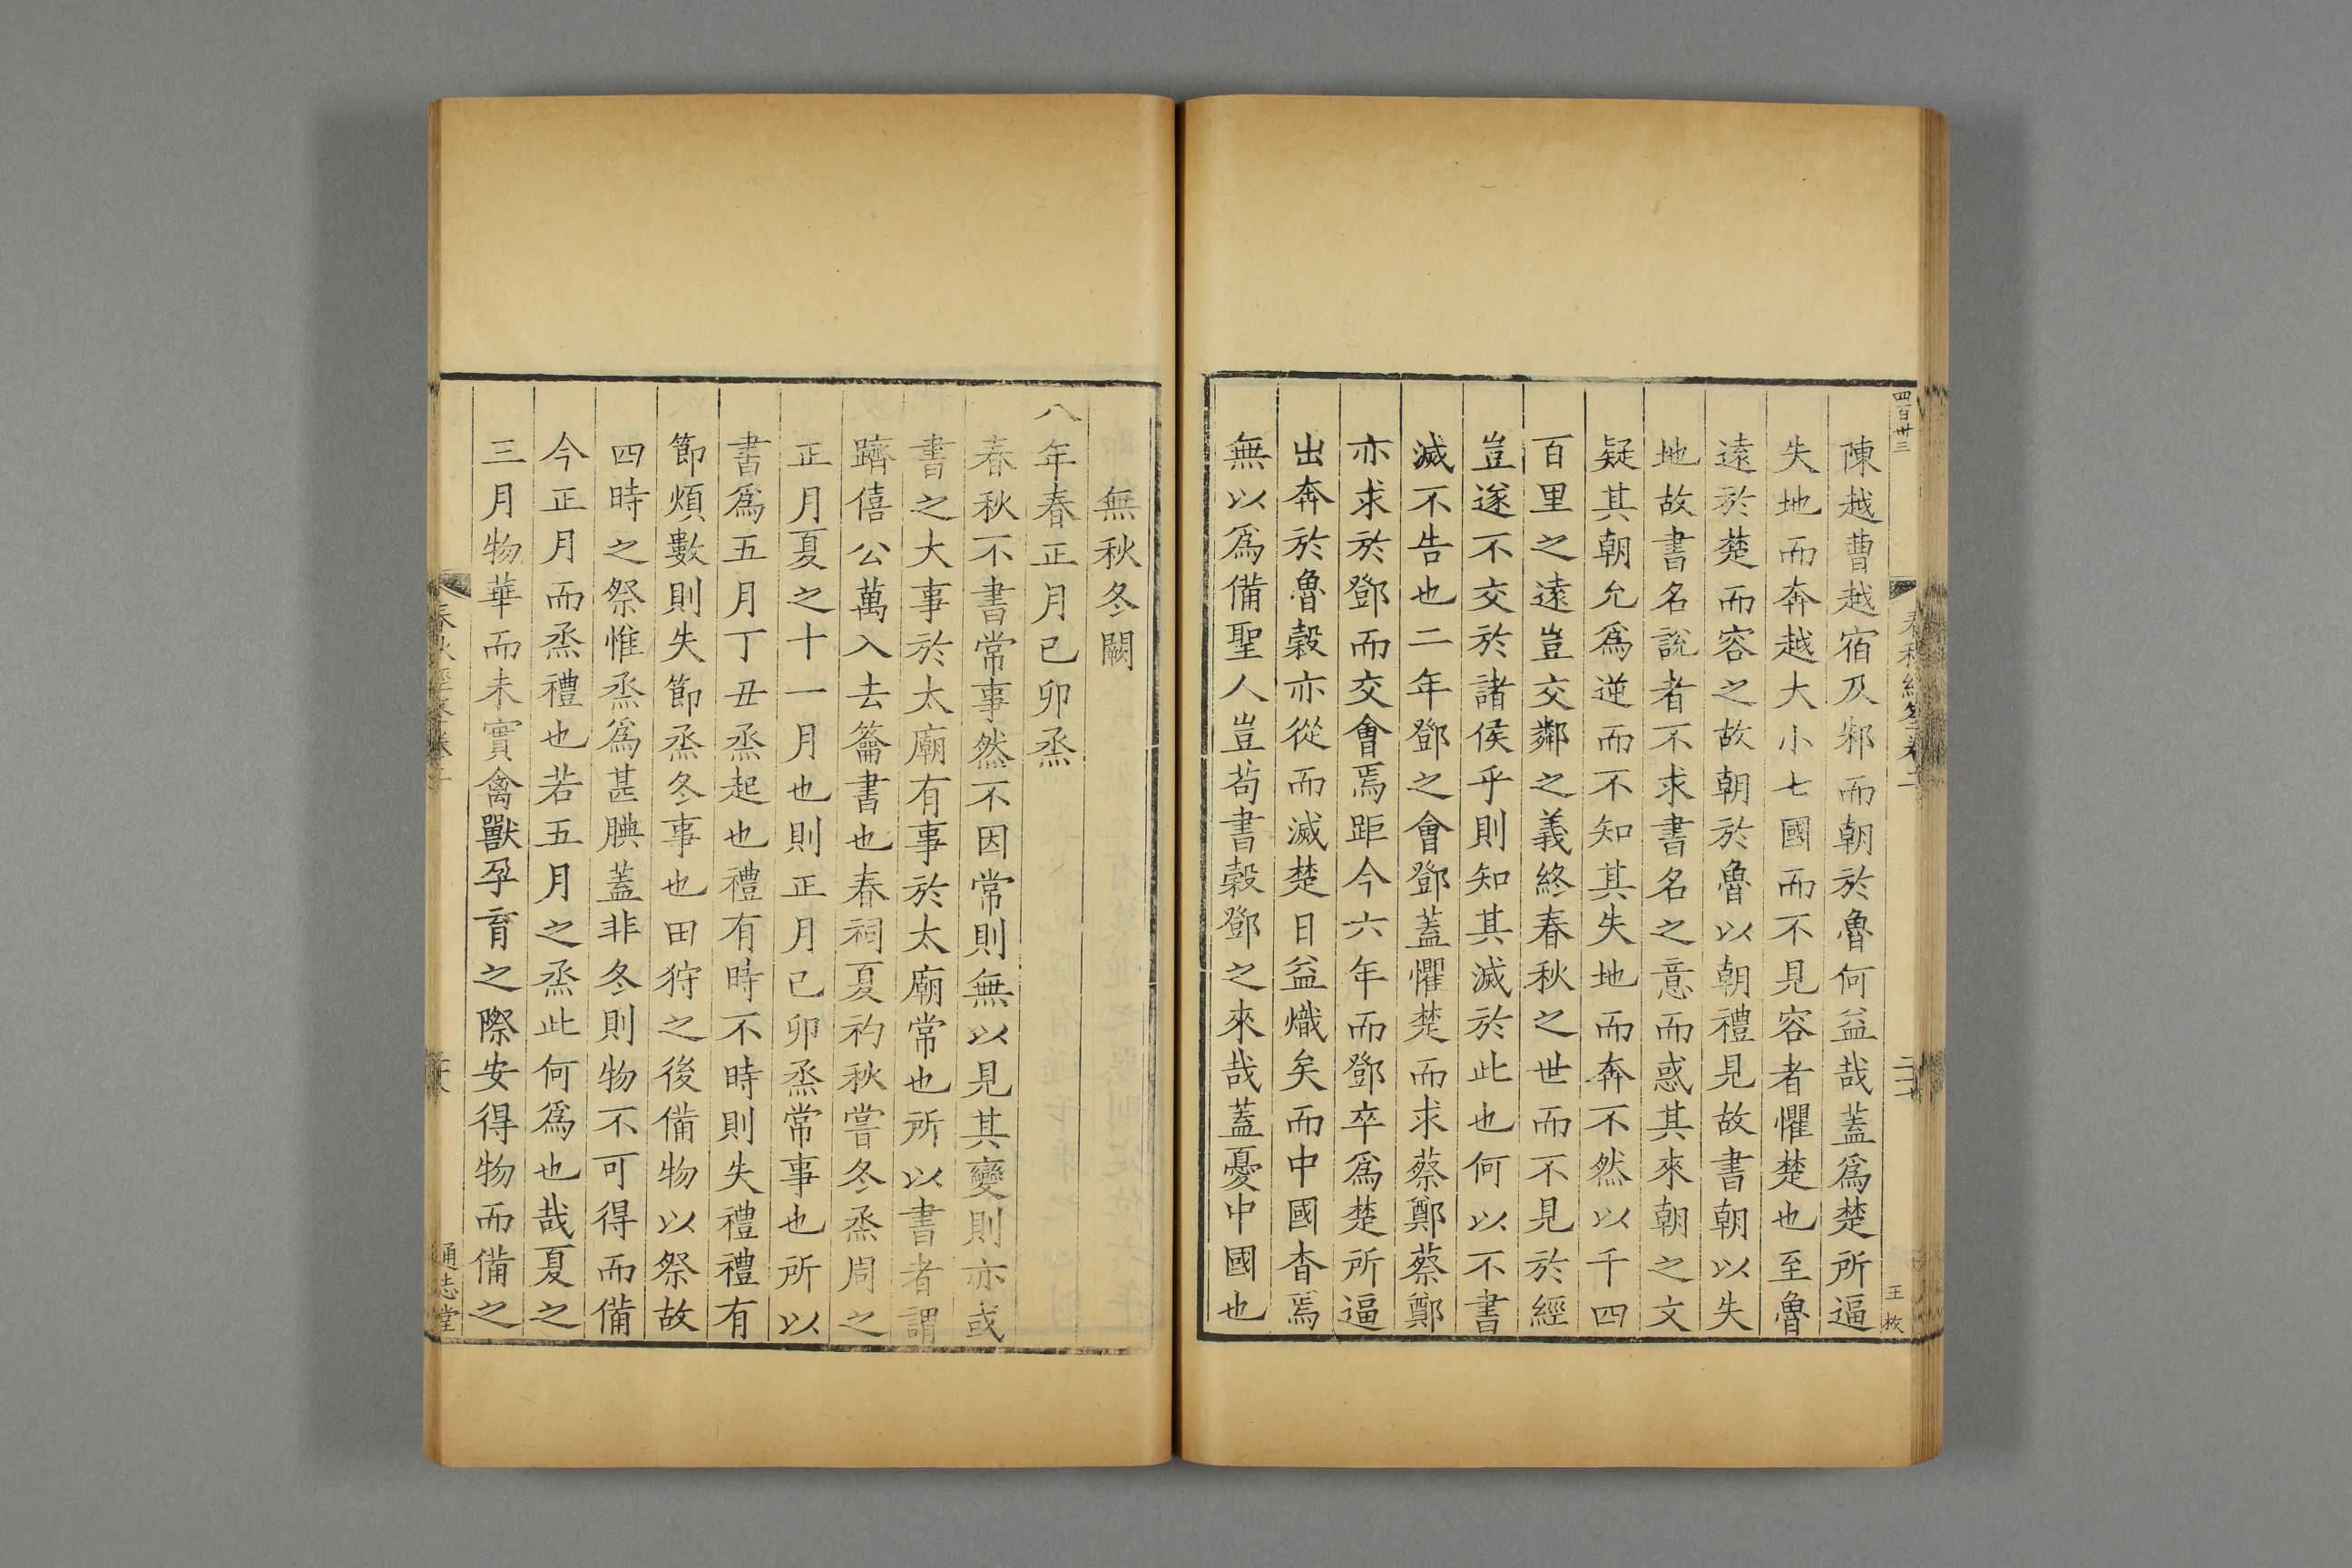 四百卅三
陳越曹越宿及邾而朝於魯何益哉蓋爲楚所逼
失地而奔越大小七國而不見容者懼楚也至魯
遠於楚而容之故朝於魯以朝禮見故書朝以失
地故書名說者不求書名之意而惑其來朝之文
疑其朝允爲逆而不知其失地而奔不然以千四
百里之遠豈交鄰之義終春秋之世而不見於經
豈遂不交於諸侯乎則知其滅於此也何以不書
滅不告也二年鄧之會鄧蓋懼楚而求蔡鄭蔡鄭
亦求於鄧而交會焉距今六年而鄧卒爲楚所逼
出奔於魯穀亦從而滅楚日益熾矣而中國杳焉
無以爲備聖人豈苟書穀鄧之來哉蓋憂中國也
無秋冬闕
八年春正月己卯烝
春秋不書常事然不因常則無以見其變則亦或
書之大事於太廟有事於太廟常也所以書者謂
躋僖公萬入去籥書也春祠夏礿秋嘗冬烝周之
正月夏之十一月也則正月己卯烝常事也所以
書爲五月丁丑烝起也禮有時不時則失禮禮有
節煩數則失節烝冬事也田狩之後備物以祭故
四時之祭惟烝爲甚腆蓋非冬則物不可得而備
今正月而烝禮也若五月之烝此何爲也哉夏之
三月物華而未實禽獸孕育之際安得物而備之
通志堂